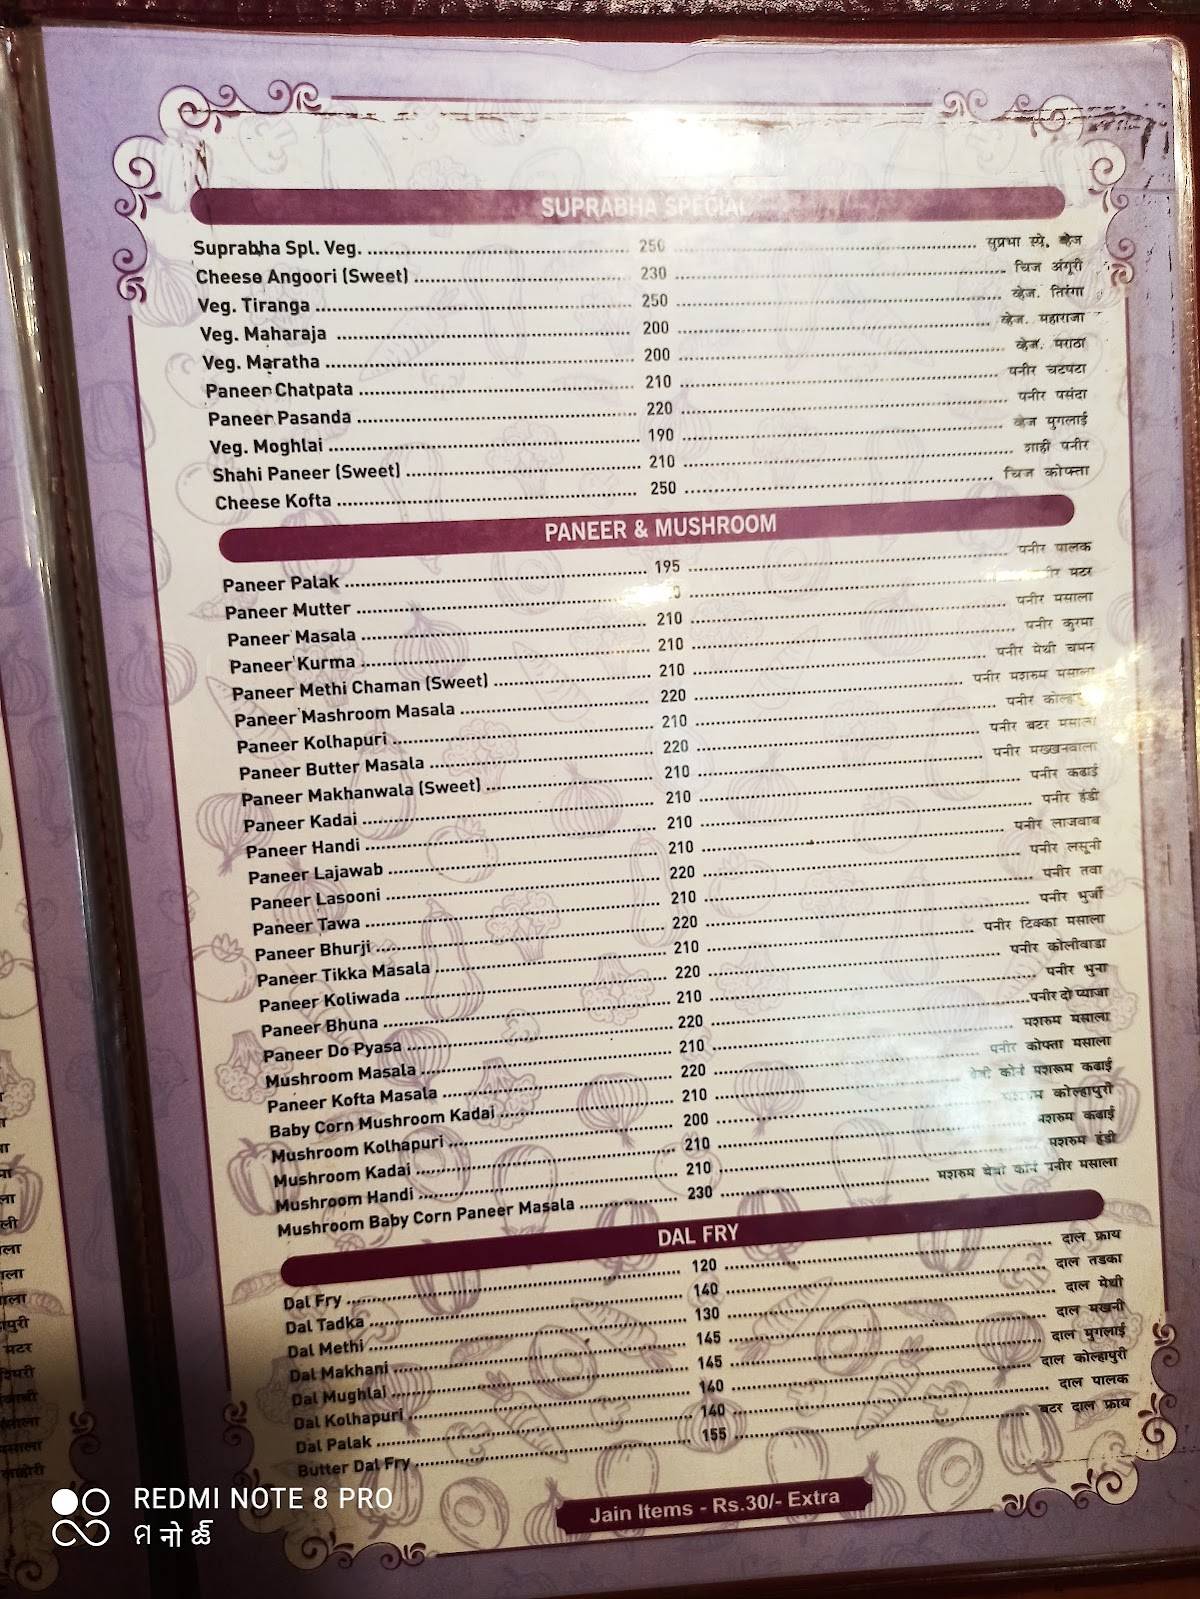 SUPRABHA SPECIAL
Suprabha Spl. Veg. 250 सुप्रभा स्पे. व्हेज
Cheese Angoori (Sweet) 230 चिज अंगूरी
Veg. Tiranga 250 व्हेज. तिरंगा
Veg. Maharaja 200 व्हेज. महाराजा
Veg. Maratha 200 व्हेज. मराठा
Paneer Chatpata 210 पनीर चटपटा
Paneer Pasanda 220 पनीर पसंदा
Veg. Moghlai 190 व्हेज मुगलाई
Shahi Paneer (Sweet) 210 शाही पनीर
Cheese Kofta 250 चिज कोफ्ता
PANEER & MUSHROOM
Paneer Palak 195 पनीर पालक
Paneer Mutter मटर
Paneer Masala 210 पनीर मसाला
Paneer Kurma 210 पनीर कुरमा
Paneer Methi Chaman (Sweet) 210 पनीर मेथी चमन
Paneer Mashroom Masala 220 पनीर मशरुम मसाला
Paneer Kolhapuri 210 पनीर
Paneer Butter Masala 220 पनीर बटर मसाला
Paneer Makhanwala (Sweet) 210 पनीर मख्खनवाला
Paneer Kadai 210 पनीर कढाई
Paneer Handi 210 पनीर हंडी
Paneer Lajawab 210 पनीर लाजवाब
Paneer Lasooni 220 पनीर लसूनी
Paneer Tawa 210 पनीर तवा
Paneer Bhurji 220 पनीर भुर्जी
Paneer Tikka Masala 210 पनीर टिक्का मसाला
Paneer Koliwada 220 पनीर कोलीवाडा
Paneer Bhuna 210 पनीर भुना
Paneer Do Pyasa 220 पनीर दो प्याजा
Mushroom Masala 210 मशरुम मसाला
Paneer Kofta Masala 220 पनीर कोफ्ता मसाला
Baby Corn Mushroom Kadai 210 कॉर्न मशरूम कढाई
Mushroom Kolhapuri 200 मशरुम कोल्हापुरी
Mushroom Kadai 210 मशरुम कढाई
Mushroom Handi 210 मशरुम हंडी
Mushroom Baby Corn Paneer Masala 230 मशरुम बेबी कॉर्न पनीर मसाला
DAL FRY
Dal Fry 120 दाल फ्राय
Dal Tadka 140 दाल तडका
Dal Methi 130 दाल मेथी
Dal Makhani 145 दाल मखनी
Dal Mughlai 145 दाल मुगलाई
Dal Kolhapuri 140 दाल कोल्हापुरी
Dal Palak 140 दाल पालक
Butter Dal Fry 155 बटर दाल फ्राय
Jain Items - Rs.30/- Extra
REDMI NOTE 8 PRO